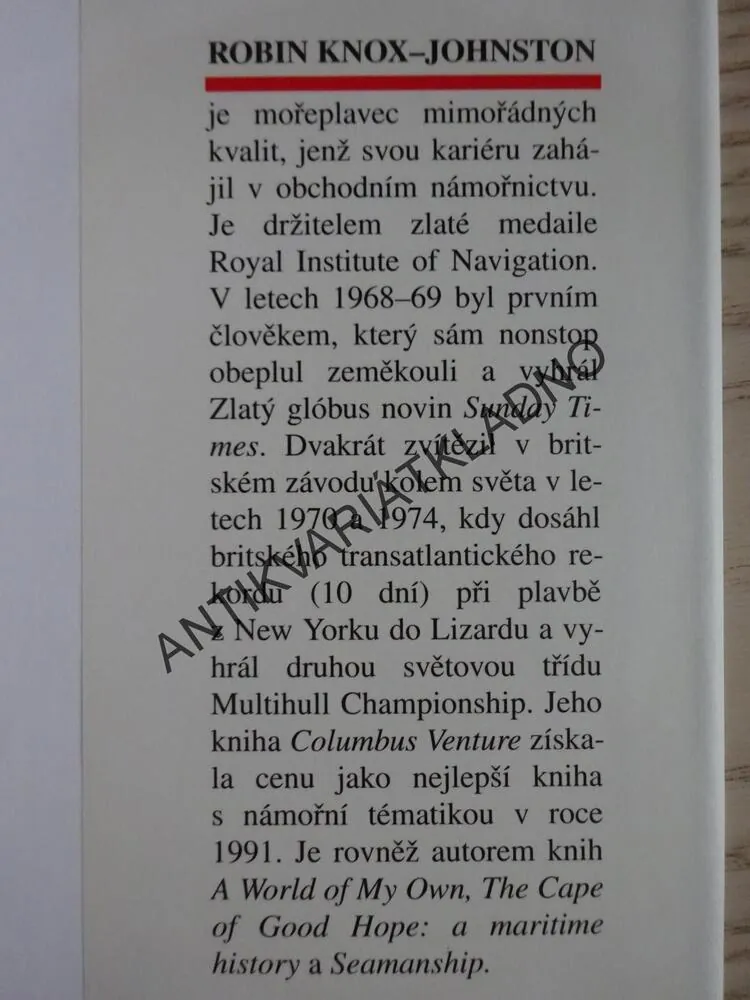 ROBIN KNOX–JOHNSTON
je mořeplavec mimořádných
kvalit, jenž svou kariéru zahá-
jil v obchodním námořnictvu.
Je držitelem zlaté medaile
Royal Institute of Navigation.
V letech 1968–69 byl prvním
člověkem, který sám nonstop
obeplul zeměkouli a vyhrál
Zlatý glóbus novin Sunday Ti-
mes. Dvakrát zvítězil v brit-
ském závodu kolem světa v le-
tech 1970 a 1974, kdy dosáhl
britského transatlantického re-
kordu (10 dní) při plavbě
z New Yorku do Lizardu a vy-
hrál druhou světovou třídu
Multihull Championship. Jeho
kniha Columbus Venture získa-
la cenu jako nejlepší kniha
s námořní tématikou v roce
1991. Je rovněž autorem knih
A World of My Own, The Cape
of Good Hope: a maritime
history a Seamanship.
ANTIKVARIÁTKLADNO